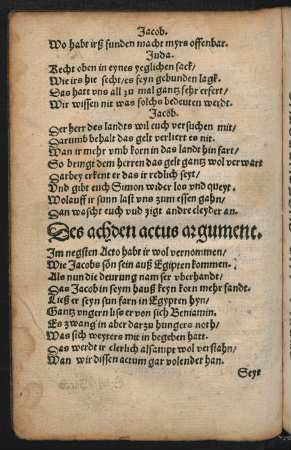 Jacob.
Wo habt irß funden macht myrs offenbar.
Juda.
Recht oben in eynes yeglichen sack/
Wie irs hie secht/es seyn gebunden lagk.
Das hatt vns all zu mal gantz sehr erfert/
Wir wissen nit was solchs bedeuten werdt.
Jacob.
Der herr des landts wil euch versuchen mit/
Darumb behalt das gelt verliert es nit.
Wan ir mehr vmb korn in das landt hin fart/
So bringt dem herren das gelt gantz wol verwart
Darbey erkent er das ir redlich seyt/
Vnd gibt euch Simon wider los vnd queyt.
Wolauff ir sunn last vns zum essen gahn/
Dan wascht euch vnd zigt andre cleyder an.
Des achden actus argument.
Im negsten Acto habt ir wol vernommen/
Wie Jacobs sön sein auß Egipten kommen.
Als nun die deurung nam ser vberhandt/
Das Jacob in seym hauß keyn korn mehr fandt.
Ließ er seyn sun farn in Egypten hyn/
Gantz vngern liß er von sich Beniamin.
Es zwang in aber darzu hungers noth/
Was sich weyters mit in begeben hatt.
Das werdt ir clerlich alsampt wol verstahn/
Wan wir dissen actum gar volendet han.
Seyt